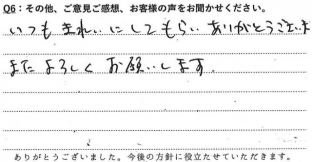 Q6：その他、ご意見ご感想、お客様の声をお聞かせください。
いつもきれいにしてもらいありがとうございま
またよろしくお願いします。
ありがとうございました。今後の方針に役立たせていただきます。